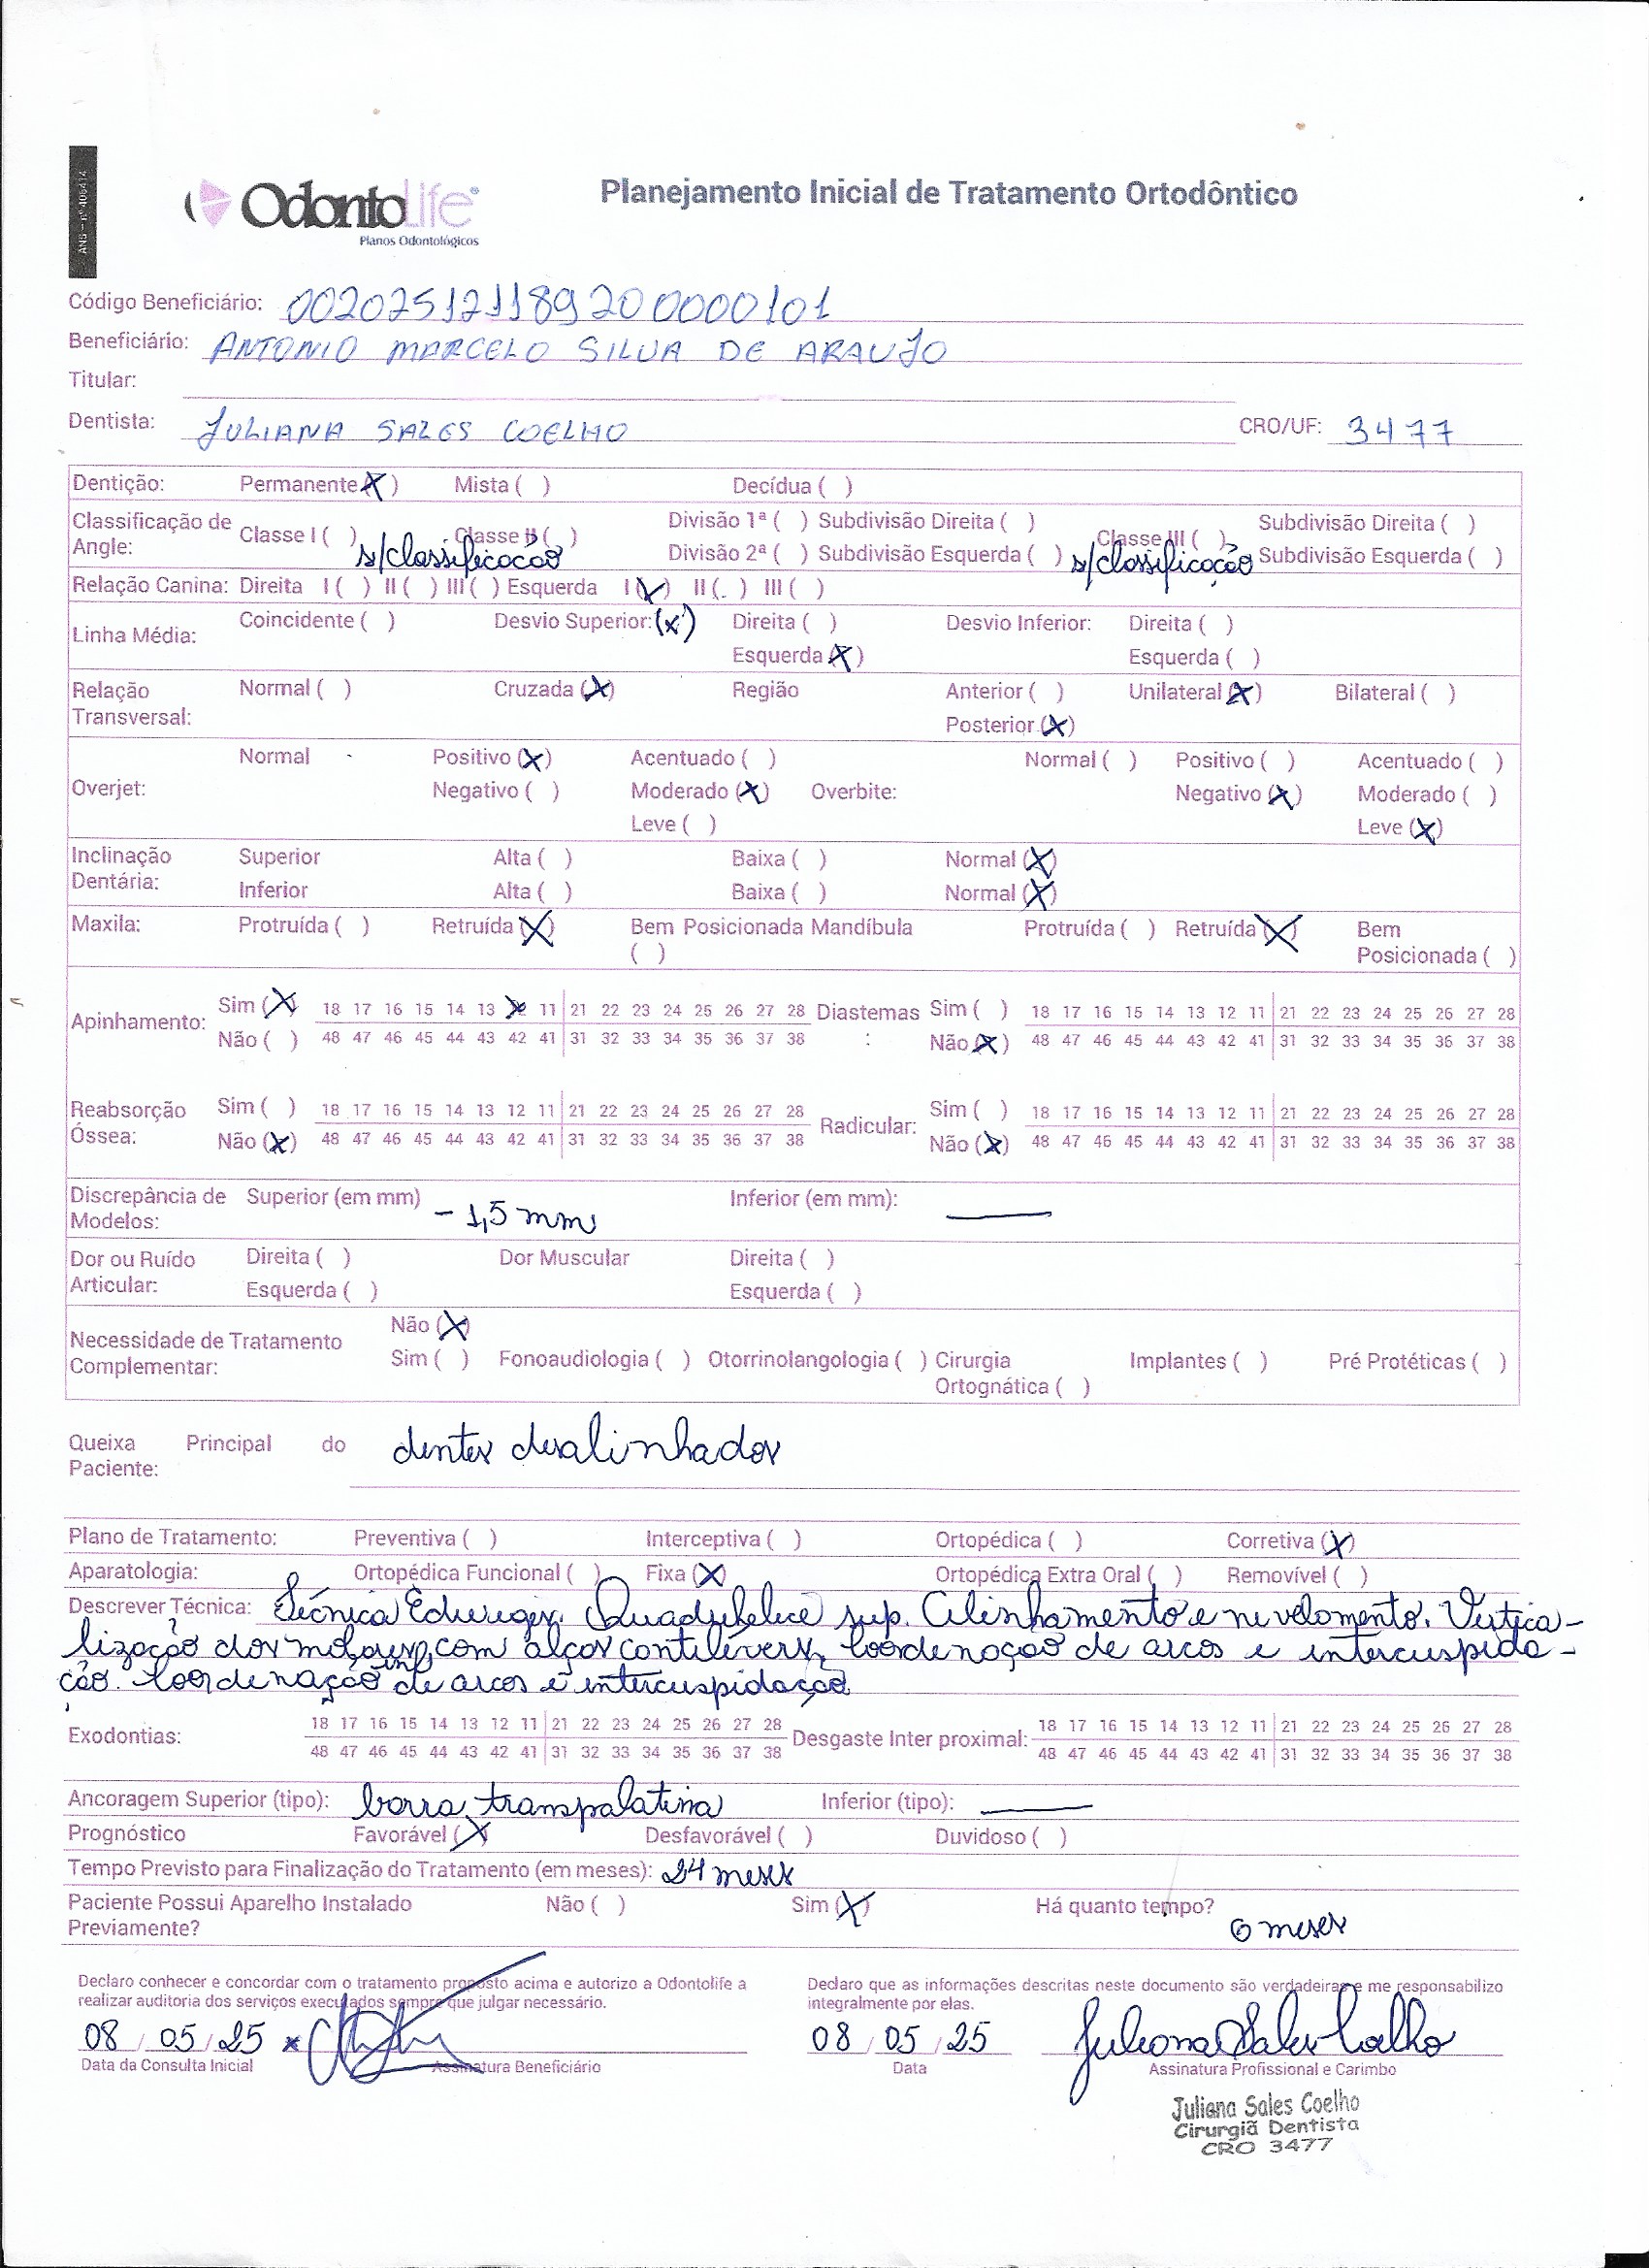 ANS - nº 406414
OdontoLife
Planos Odontológicos
Planejamento Inicial de Tratamento Ortodôntico
Código Beneficiário: 00202512118920000010​1
Beneficiário: ANTONIO MARCELO SILVA DE ARAUJO
Titular:
Dentista: JULIANA SALES COELHO CRO/UF: 3477
Dentição: Permanente (X) Mista ( ) Decídua ( )
Classificação de Angle: Classe I ( ) Classe II ( ) Divisão 1ª ( ) Subdivisão Direita ( ) Classe III ( ) Subdivisão Direita ( )
s/classificação Divisão 2ª ( ) Subdivisão Esquerda ( ) s/classificação Subdivisão Esquerda ( )
Relação Canina: Direita I ( ) II ( ) III ( ) Esquerda I (X) II ( ) III ( )
Linha Média: Coincidente ( ) Desvio Superior: (X) Direita ( ) Desvio Inferior: Direita ( )
Esquerda (X) Esquerda ( )
Relação Transversal: Normal ( ) Cruzada (X) Região Anterior ( ) Unilateral (X) Bilateral ( )
Posterior (X)
Overjet: Normal Positivo (X) Acentuado ( ) Normal ( ) Positivo ( ) Acentuado ( )
Negativo ( ) Moderado (X) Overbite: Negativo (X) Moderado ( )
Leve ( ) Leve (X)
Inclinação Dentária: Superior Alta ( ) Baixa ( ) Normal (X)
Inferior Alta ( ) Baixa ( ) Normal (X)
Maxila: Protruída ( ) Retruída (X) Bem Posicionada ( ) Mandíbula Protruída ( ) Retruída (X) Bem Posicionada ( )
Apinhamento: Sim (X) 18 17 16 15 14 13 X 11 21 22 23 24 25 26 27 28 Diastemas: Sim ( ) 18 17 16 15 14 13 12 11 21 22 23 24 25 26 27 28
Não ( ) 48 47 46 45 44 43 42 41 31 32 33 34 35 36 37 38 Não (X) 48 47 46 45 44 43 42 41 31 32 33 34 35 36 37 38
Reabsorção Óssea: Sim ( ) 18 17 16 15 14 13 12 11 21 22 23 24 25 26 27 28 Radicular: Sim ( ) 18 17 16 15 14 13 12 11 21 22 23 24 25 26 27 28
Não (X) 48 47 46 45 44 43 42 41 31 32 33 34 35 36 37 38 Não (X) 48 47 46 45 44 43 42 41 31 32 33 34 35 36 37 38
Discrepância de Modelos: Superior (em mm) - 1,5 mm Inferior (em mm): —
Dor ou Ruído Articular: Direita ( ) Dor Muscular Direita ( )
Esquerda ( ) Esquerda ( )
Necessidade de Tratamento Complementar: Não (X)
Sim ( ) Fonoaudiologia ( ) Otorrinolangologia ( ) Cirurgia Ortognática ( ) Implantes ( ) Pré Protéticas ( )
Queixa Principal do Paciente: dentes desalinhados
Plano de Tratamento: Preventiva ( ) Interceptiva ( ) Ortopédica ( ) Corretiva (X)
Aparatologia: Ortopédica Funcional ( ) Fixa (X) Ortopédica Extra Oral ( ) Removível ( )
Descrever Técnica: Técnica Quadrihelice sup. Alinhamento e nivelamento. Vertica-
lização dos molares inf com alças cantilévers, Coordenação de arcos e intercuspida-
ção. Coordenação de arcos e intercuspidação
Exodontias: 18 17 16 15 14 13 12 11 21 22 23 24 25 26 27 28 Desgaste Inter proximal: 18 17 16 15 14 13 12 11 21 22 23 24 25 26 27 28
48 47 46 45 44 43 42 41 31 32 33 34 35 36 37 38 48 47 46 45 44 43 42 41 31 32 33 34 35 36 37 38
Ancoragem Superior (tipo): barra transpalatina Inferior (tipo): —
Prognóstico Favorável (X) Desfavorável ( ) Duvidoso ( )
Tempo Previsto para Finalização do Tratamento (em meses): 24 meses
Paciente Possui Aparelho Instalado Previamente? Não ( ) Sim (X) Há quanto tempo? 6 meses
Declaro conhecer e concordar com o tratamento proposto acima e autorizo a Odontolife a realizar auditoria dos serviços executados sempre que julgar necessário.
Declaro que as informações descritas neste documento são verdadeiras e me responsabilizo integralmente por elas.
08 / 05 / 25 08 / 05 / 25 Juliana Sales Coelho
Data da Consulta Inicial Assinatura Beneficiário Data Assinatura Profissional e Carimbo
Juliana Sales Coelho
Cirurgiã Dentista
CRO 3477